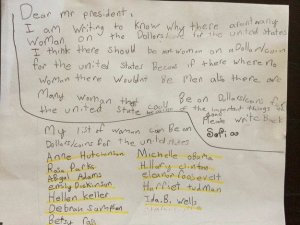 Dear mr president,
I am writing to know why there arint many
woman on the Dollars/coins for the united states
I think there should be more woman on a Dollar/coin
for the united states Becous if there where no
woman there wouldnt be men also there are
Many woman that could Be on Dollars/coins for
the united state because of the important things
Please write Back
Sofia
My list of woman can Be on
Dollars/coins for the united states
Anne Hutchinson
Rosa Parks
Abigal Adams
emily Dickinson
Hellen keller
Deborah Sampson
Betsy ross
Michelle obama
Hillary clinton
eleanor roosevelt
Harriet tudman
Ida.B. wells